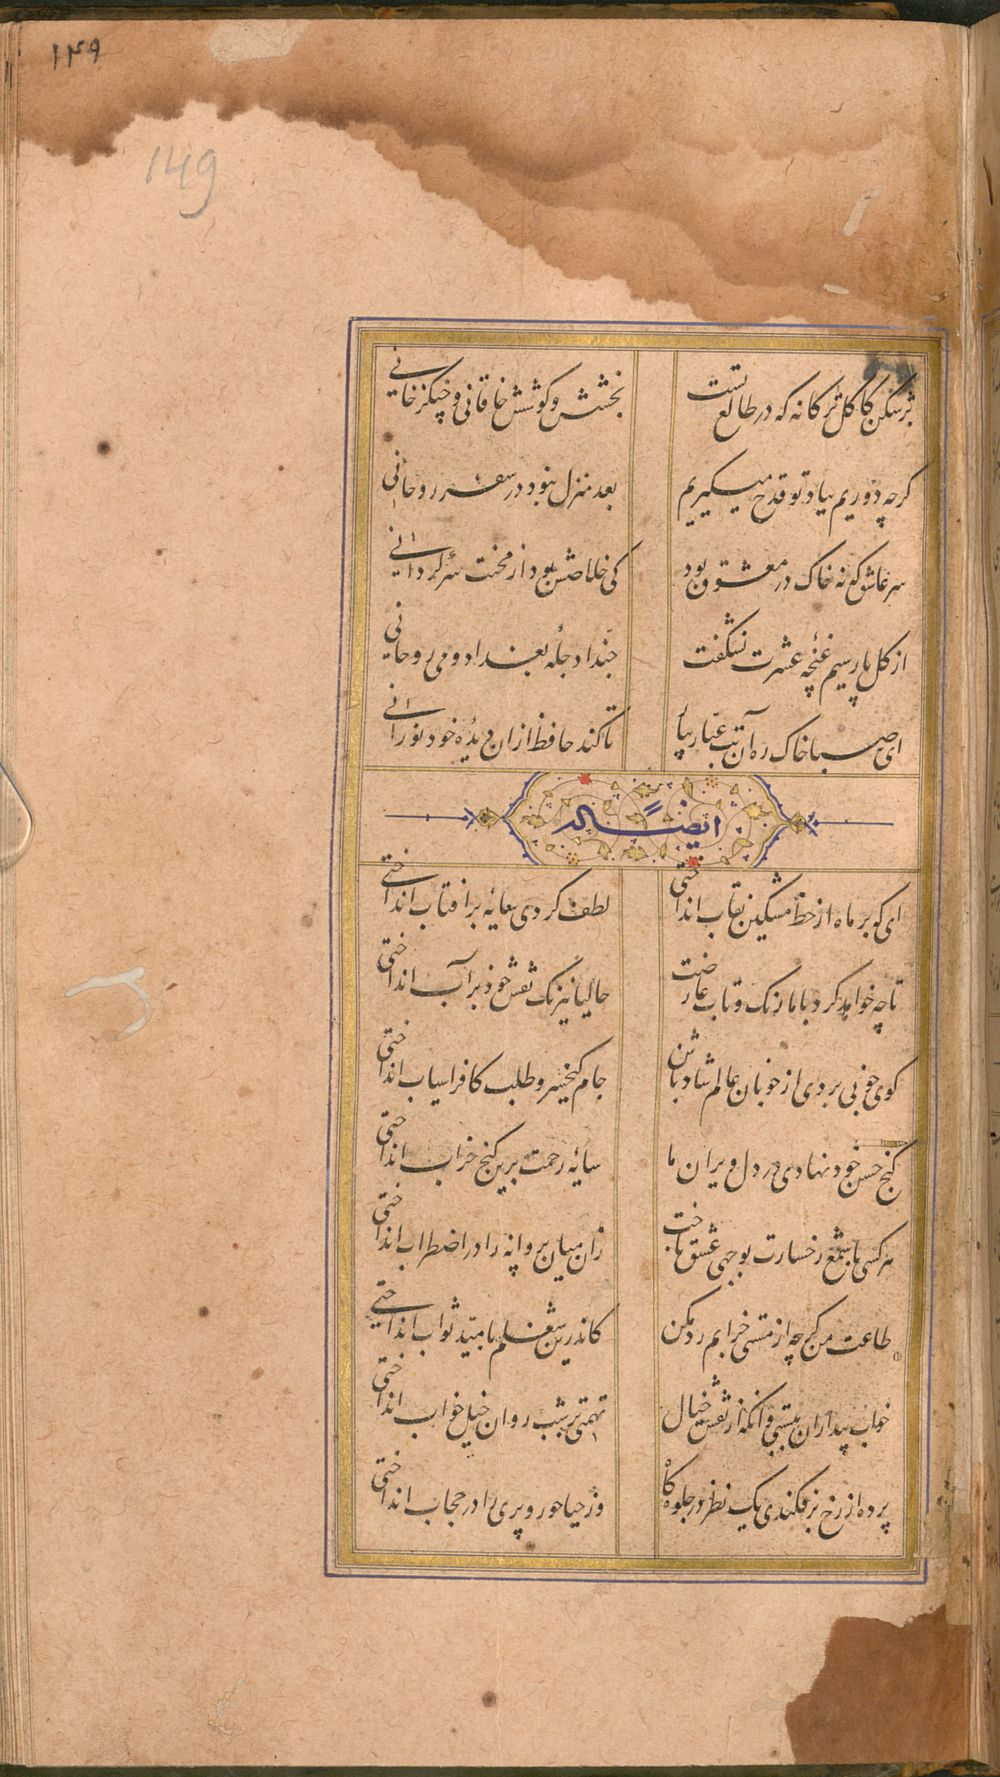 ۱۴۹
149
برشکن کاکل ترکانه که در طالع تست
بخشش و کوشش خاقانی و چنکز خانی
کرچه دوریم بیاد تو قدح میکیریم
بعد منزل نبود در سفر روحانی
سر عاشق که نه خاک در معشوق بود
کی خلاصش بود از محنت سرکردانی
از کل پارسیم غنچه عشرت نشکفت
حبذا دجله بغداد و می روحانی
ای صبا خاک ره آن بیار
تا کند حافظ ازان دیده خود نورانی
ایضاً له
ای که بر ماه از خط مشکین نقاب انداختی
لطف کردی سایه بر افتاب انداختی
تا چه خواهد کرد با ما رنک و تاب عارضت
حالیا نیرنک نقش خود بر آب انداختی
کوی خوبی بردی از خوبان عالم شاد باش
جام کیخسرو طلب کافراسیاب انداختی
کنج حسن خود نهادی در دل ویران ما
سایه رحمت برین کنج خراب انداختی
هر کسی با شمع رخسارت بوجهی عشق باخت
زان میان پروانه را در اضطراب انداختی
طاعت من کرچه از مستی خرابم رد مکن
کاندرین شغلم بامید ثواب انداختی
خواب بیداران ببستی وانکه از نقش خیال
تهمتی بر شب روان خیل خواب انداختی
پرده از رخ بر فکندی یک نظر در جلوه کاه
وز حیا حور و پری را در حجاب انداختی